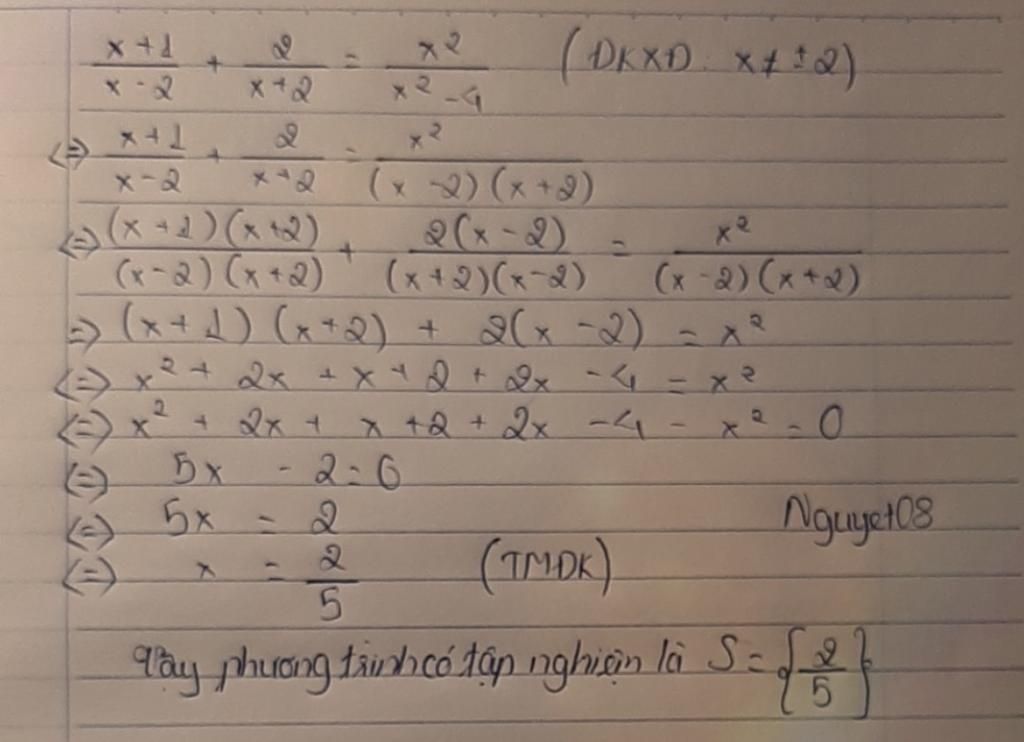 x+1/x-2 + 2/x+2 = x²/x²-4 (ĐKXĐ: x≠±2)
<=> x+1/x-2 + 2/x+2 = x²/(x-2)(x+2)
<=> (x+1)(x+2)/(x-2)(x+2) + 2(x-2)/(x+2)(x-2) = x²/(x-2)(x+2)
=> (x+1)(x+2) + 2(x-2) = x²
<=> x² + 2x + x + 2 + 2x - 4 = x²
<=> x² + 2x + x + 2 + 2x - 4 - x² = 0
<=> 5x - 2 = 0
<=> 5x = 2 Nguyet08
<=> x = 2/5 (TMĐK)
Vậy phương trình có tập nghiệm là S = {2/5}